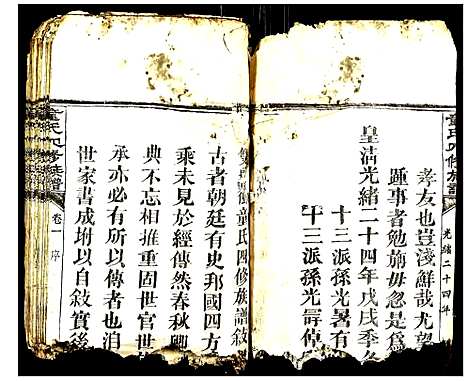 孝友也豈淺鮮哉尤望
踵事者勉旃毋忽是爲
皇清光緒二十四年戊戌季冬
十三派孫光暑有
十三派孫光壽倬
童氏四修族譜
光緒二十四年
童氏四修族譜敘
古者朝廷有史邦國四方
乘未見於經傳然春秋卿
典不忘相推重固世官世
承亦必有所以傳者也洎
世家書成坿以自敘實後
童氏四修族譜
卷一 序